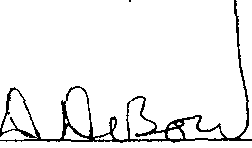 A DeBow